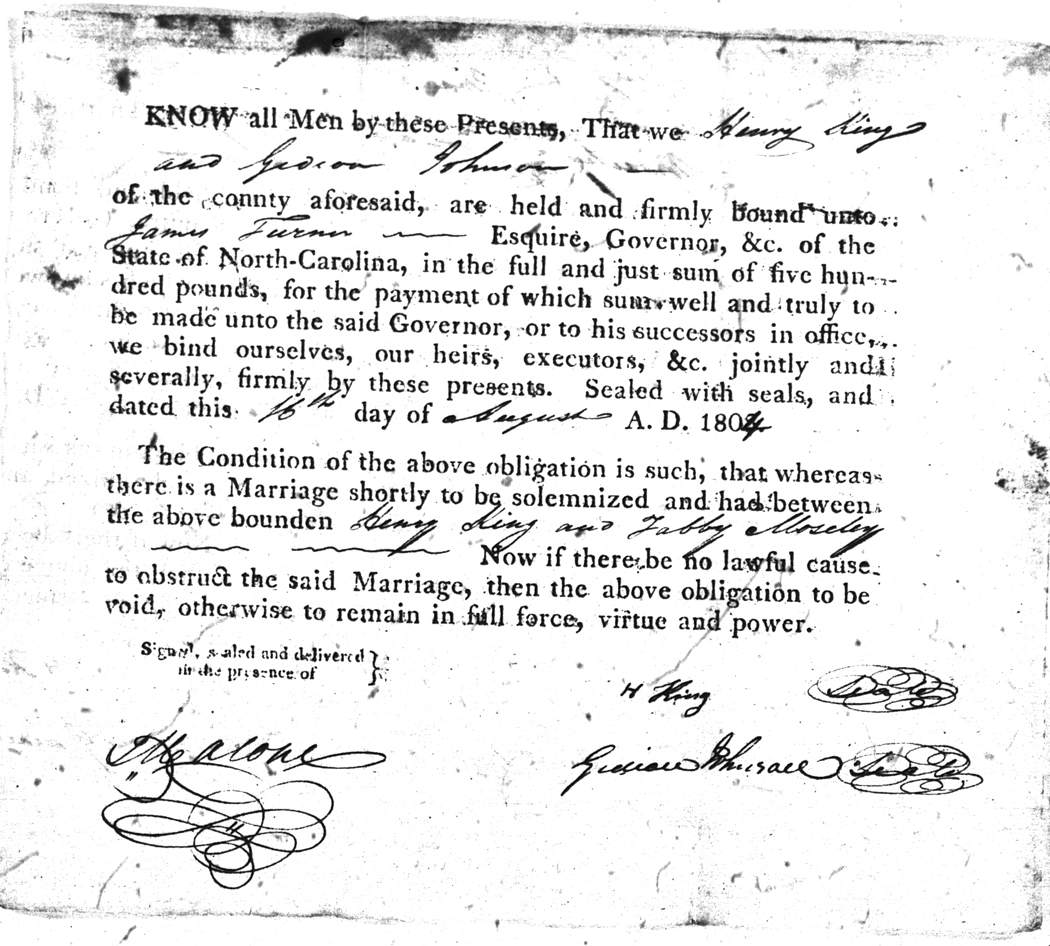 KNOW all Men by these Presents, That we Henry King
and Gideon Johnson
of the county aforesaid, are held and firmly bound unto
James Turner Esquire, Governor, &c. of the
State of North-Carolina, in the full and just sum of five hun-
dred pounds, for the payment of which sum well and truly to
be made unto the said Governor, or to his successors in office,
we bind ourselves, our heirs, executors, &c. jointly and
severally, firmly by these presents. Sealed with seals, and
dated this 16th day of August A. D. 1804
The Condition of the above obligation is such, that whereas
there is a Marriage shortly to be solemnized and had between
the above bounden Henry King and Tabby Moseley
Now if there be no lawful cause
to obstruct the said Marriage, then the above obligation to be
void, otherwise to remain in full force, virtue and power.
Signed, sealed and delivered
in the presence of
H King Seal
Gideon Johnson Seal
Malone